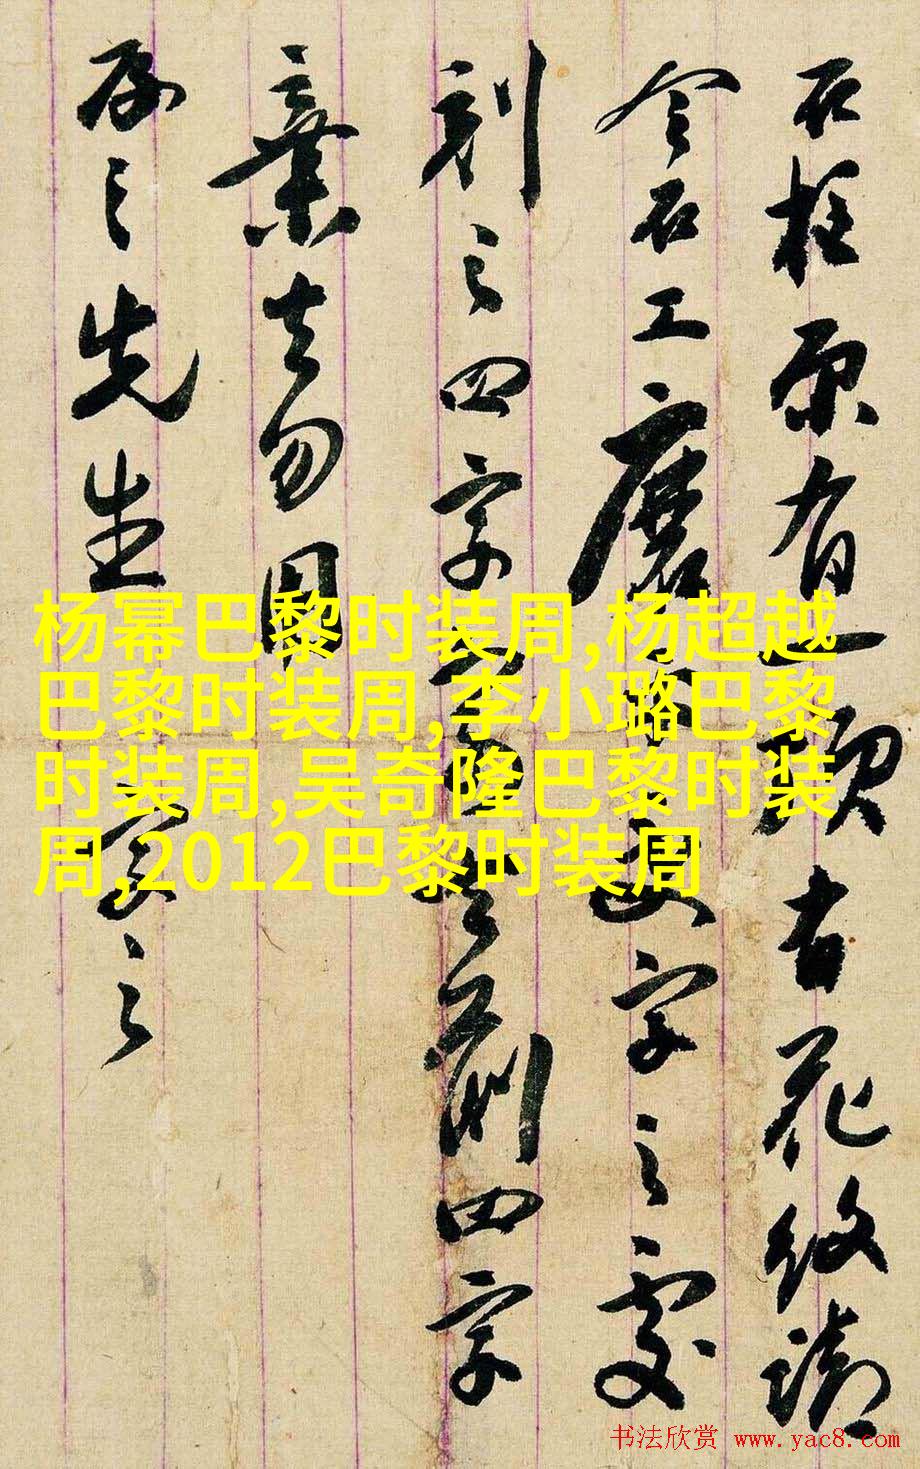 石柱原有一頭古花紋請
令石工磨文字之處
刻之四字前四字
棄去勿
之先生之
杨幂巴黎时装周,杨超越
巴黎时装周,李小璐巴黎
时装周,吴奇隆巴黎时装
周,2012巴黎时装周
书法欣赏 www.yac8.com